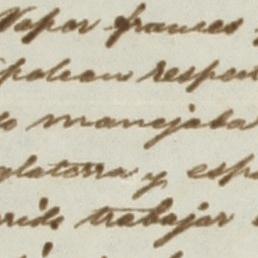 Vapor frances
poleon respon
manejaba
glaterra y esp
trabajar